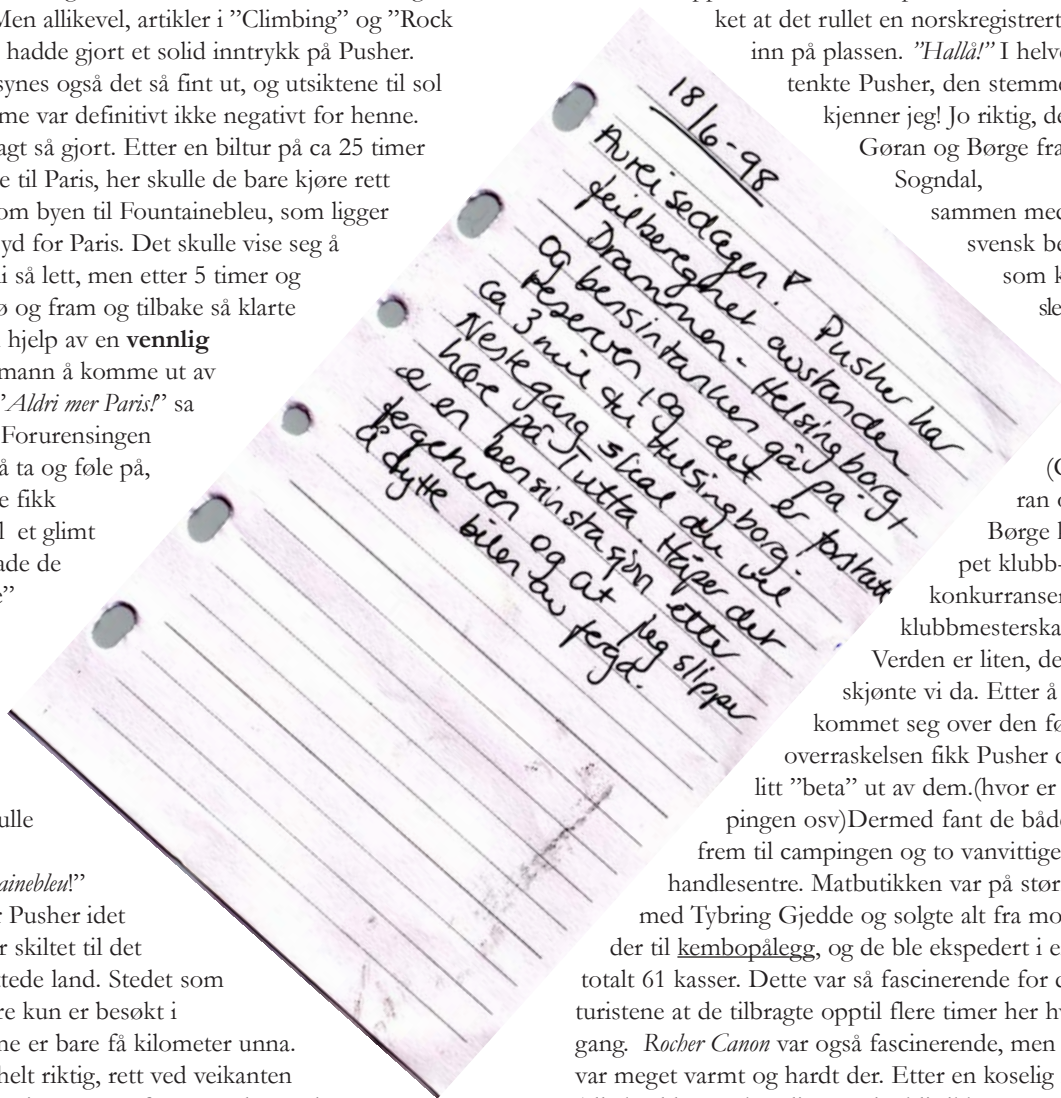 Men allikevel, artikler i ”Climbing” og ”Rock
hadde gjort et solid inntrykk på Pusher.
synes også det så fint ut, og utsiktene til sol
me var definitivt ikke negativt for henne.
agt så gjort. Etter en biltur på ca 25 timer
e til Paris, her skulle de bare kjøre rett
om byen til Fountainebleu, som ligger
yd for Paris. Det skulle vise seg å
i så lett, men etter 5 timer og
ø og fram og tilbake så klarte
hjelp av en vennlig
mann å komme ut av
”Aldri mer Paris!” sa
Forurensingen
å ta og føle på,
e fikk
l et glimt
ade de
e”
ulle
ainebleu!”
r Pusher idet
r skiltet til det
ttede land. Stedet som
re kun er besøkt i
ne er bare få kilometer unna.
helt riktig, rett ved veikanten
18/6-98
Avreisedagen!
Pusher har
feilberegnet avstanden
Drammen - Helsingborg,
og bensintanken går på
reserven, og det er fortsatt
ca 3 mil til Helsingborg.
Neste gang skal du vel
høre på Tutta. Håper det
er en bensinstasjon etter
fergeturen og at jeg slipper
å dytte bilen av ferga.
ket at det rullet en norskregistrert
inn på plassen. ”Hallå!” I helve
tenkte Pusher, den stemme
kjenner jeg! Jo riktig, de
Gøran og Børge fra
Sogndal,
sammen med
svensk be
som k
sle
(G
ran o
Børge h
pet klubb-
konkurranser
klubbmesterska
Verden er liten, de
skjønte vi da. Etter å
kommet seg over den fø
overraskelsen fikk Pusher o
litt ”beta” ut av dem.(hvor er
pingen osv)Dermed fant de både
frem til campingen og to vanvittige
handlesentre. Matbutikken var på størr
med Tybring Gjedde og solgte alt fra mo
der til kembopålegg, og de ble ekspedert i e
totalt 61 kasser. Dette var så fascinerende for d
turistene at de tilbragte opptil flere timer her hv
gang. Rocher Canon var også fascinerende, men
var meget varmt og hardt der. Etter en koselig